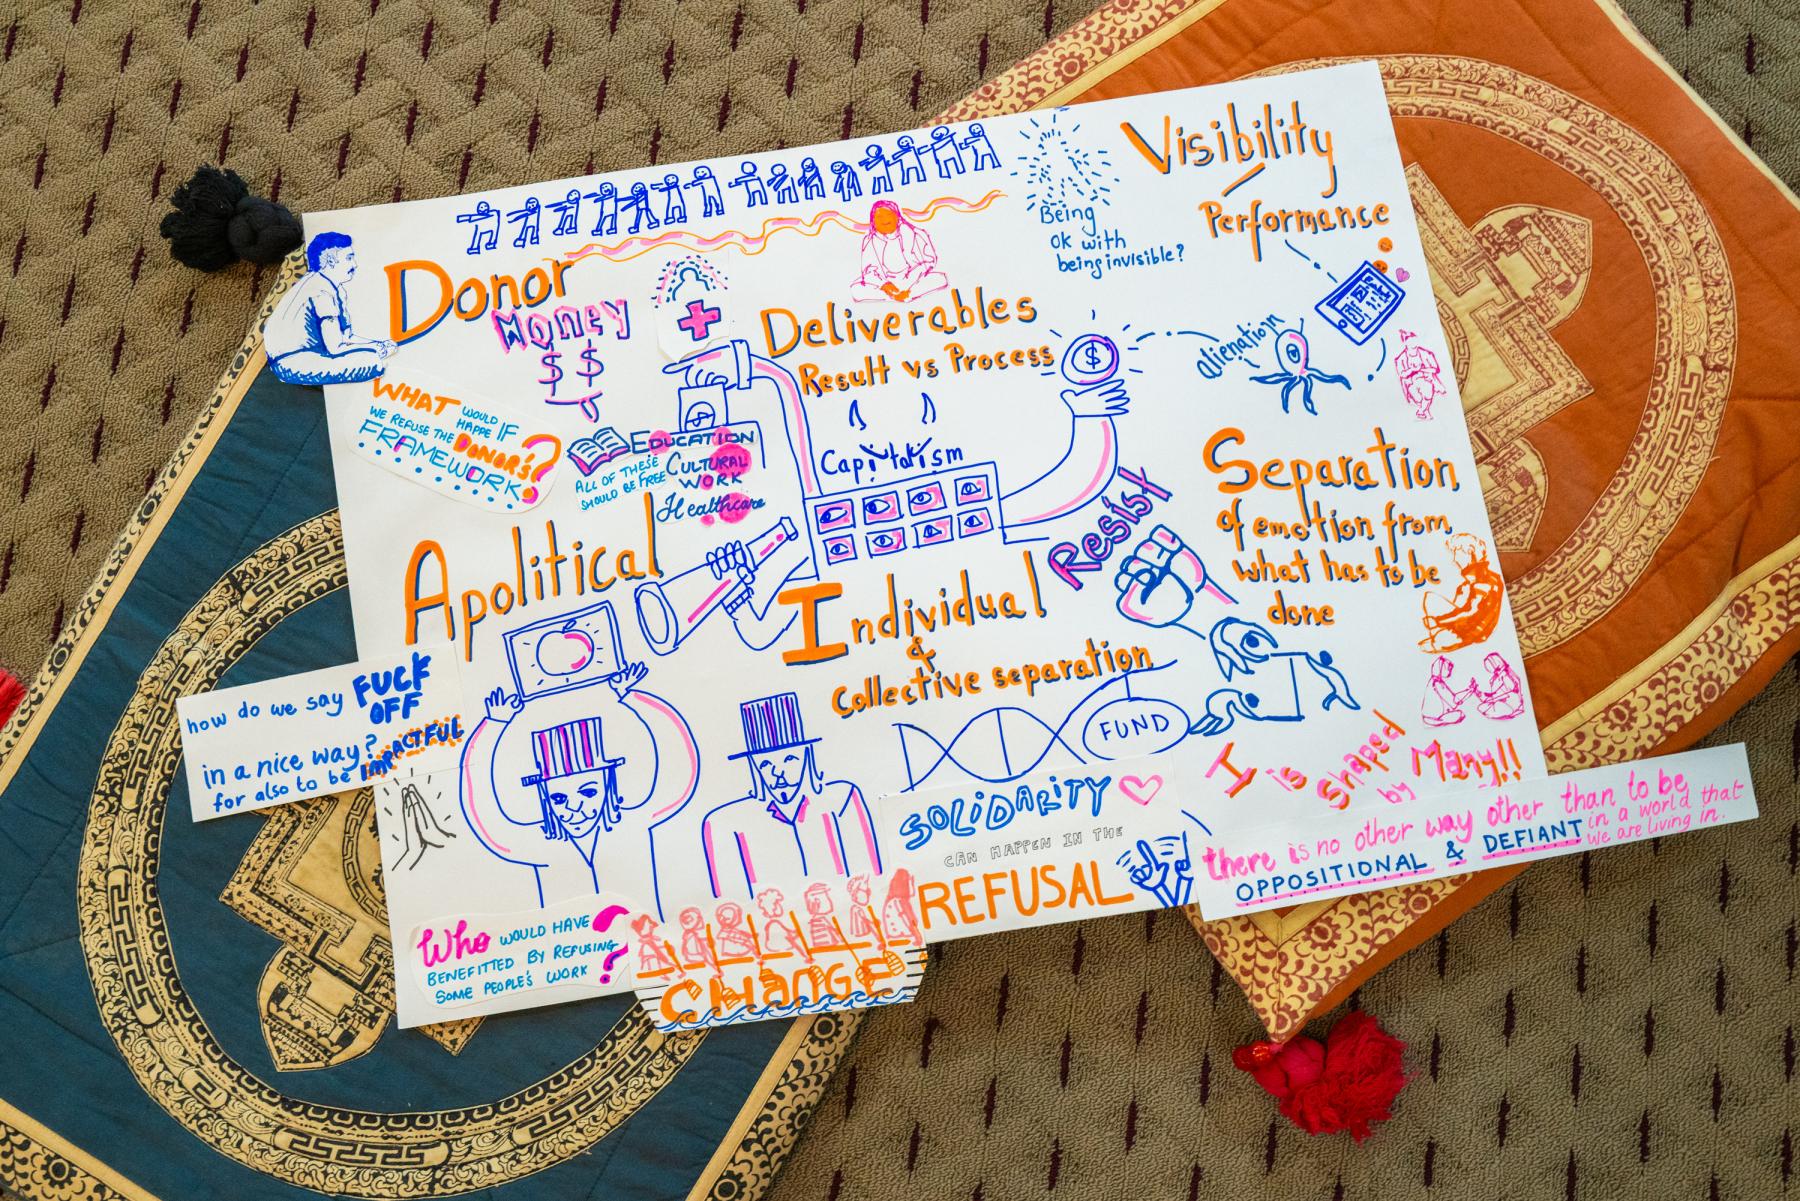 Visibility
Performance
Being
ok with
being invisible?
Donor
Money
$ $
Deliverables
Result vs Process
$
alienation
WHAT WOULD
HAPPE IF
WE REFUSE THE DONOR'S?
FRAMEWORK
EDUCATION
ALL OF THESE
SHOULD BE FREE
CULTURAL
WORK
Healthcare
Capitalism
Resist
Separation
of emotion from
what has to be
done
Apolitical
Individual
&
Collective separation
FUND
how do we say FUCK
OFF
in a nice way?
for also to be IMPACTFUL
I is shaped
by Many!!
SOLIDARITY
CAN HAPPEN IN THE
REFUSAL
there is no other way other than to be
OPPOSITIONAL & DEFIANT in a world that
we are living in.
Who WOULD HAVE
BENEFITTED BY REFUSING
SOME PEOPLE'S WORK ?
CHANGE